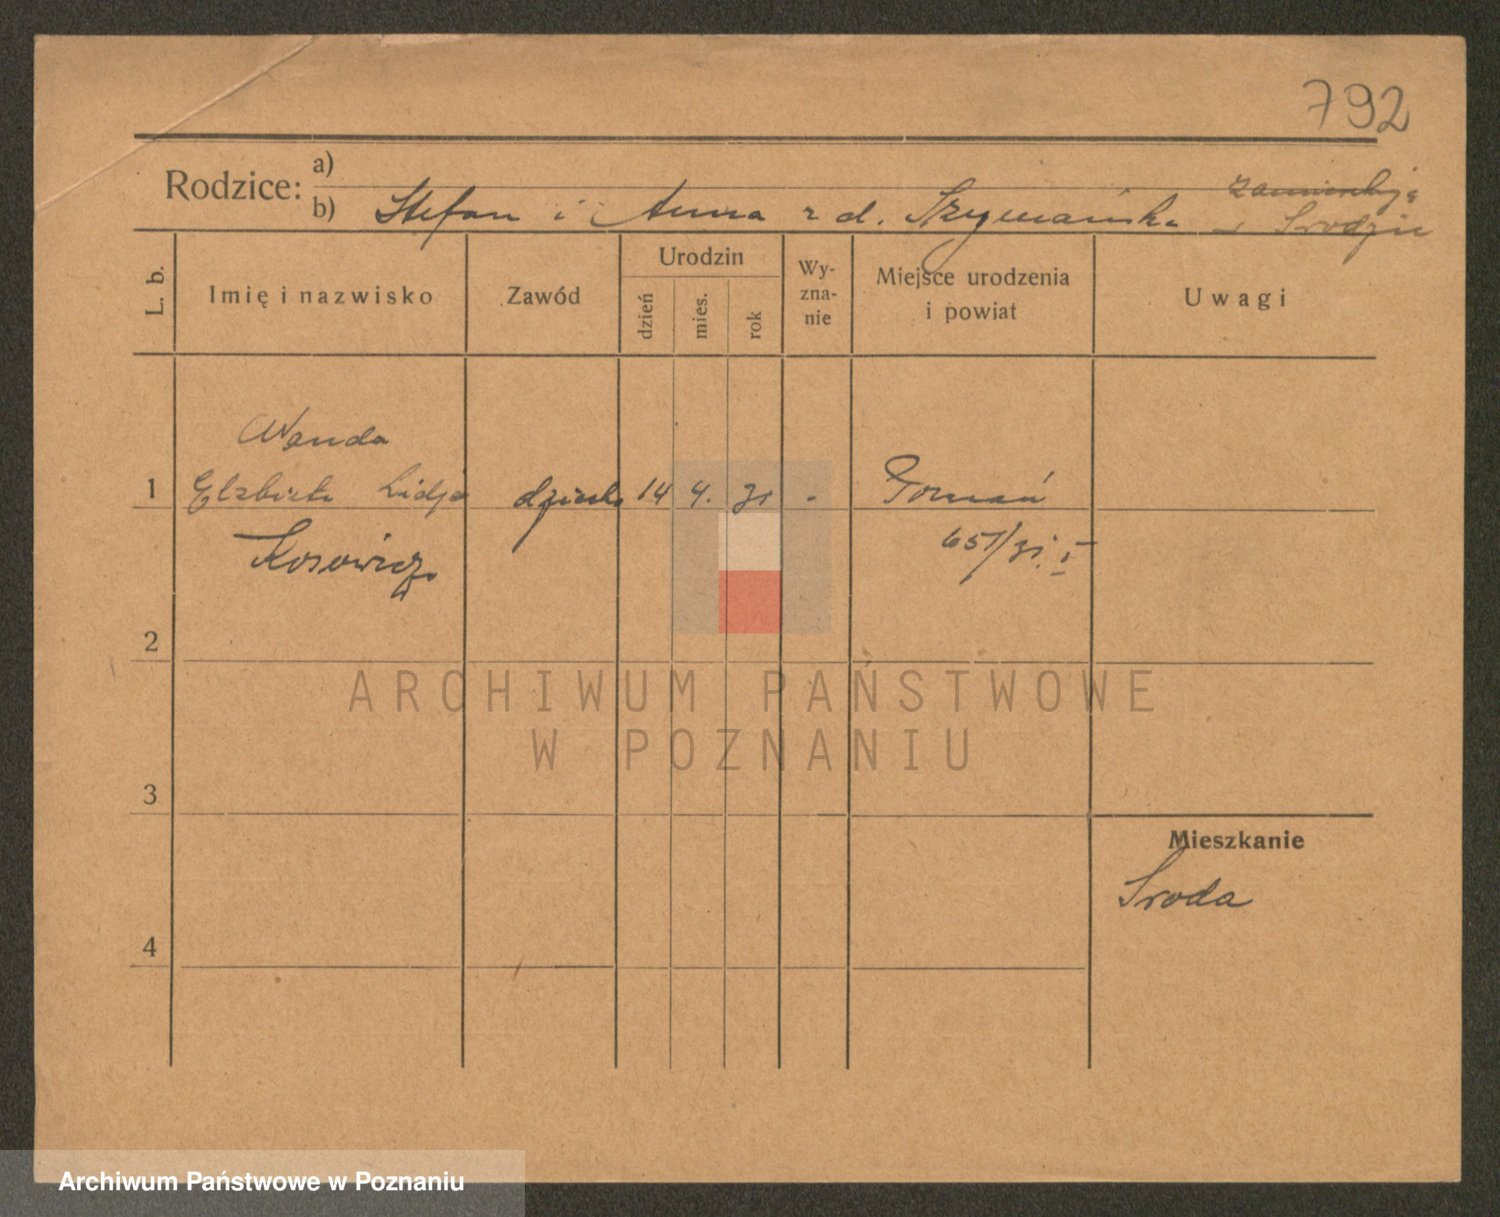 792
Rodzice: a)
b) Stefan i Anna z d. Szymańska zamieszkują
w Środzie
L. b.
Imię i nazwisko
Zawód
Urodzin
dzień
mies.
rok
Wy-
zna-
nie
Miejsce urodzenia
i powiat
Uwagi
Wanda
1 Elżbieta Lidja dziecko 14 4. 31 - Poznań
Kosowicz
651/31. I
2
ARCHIWUM PAŃSTWOWE
W POZNANIU
3
Mieszkanie
Środa
4
Archiwum Państwowe w Poznaniu